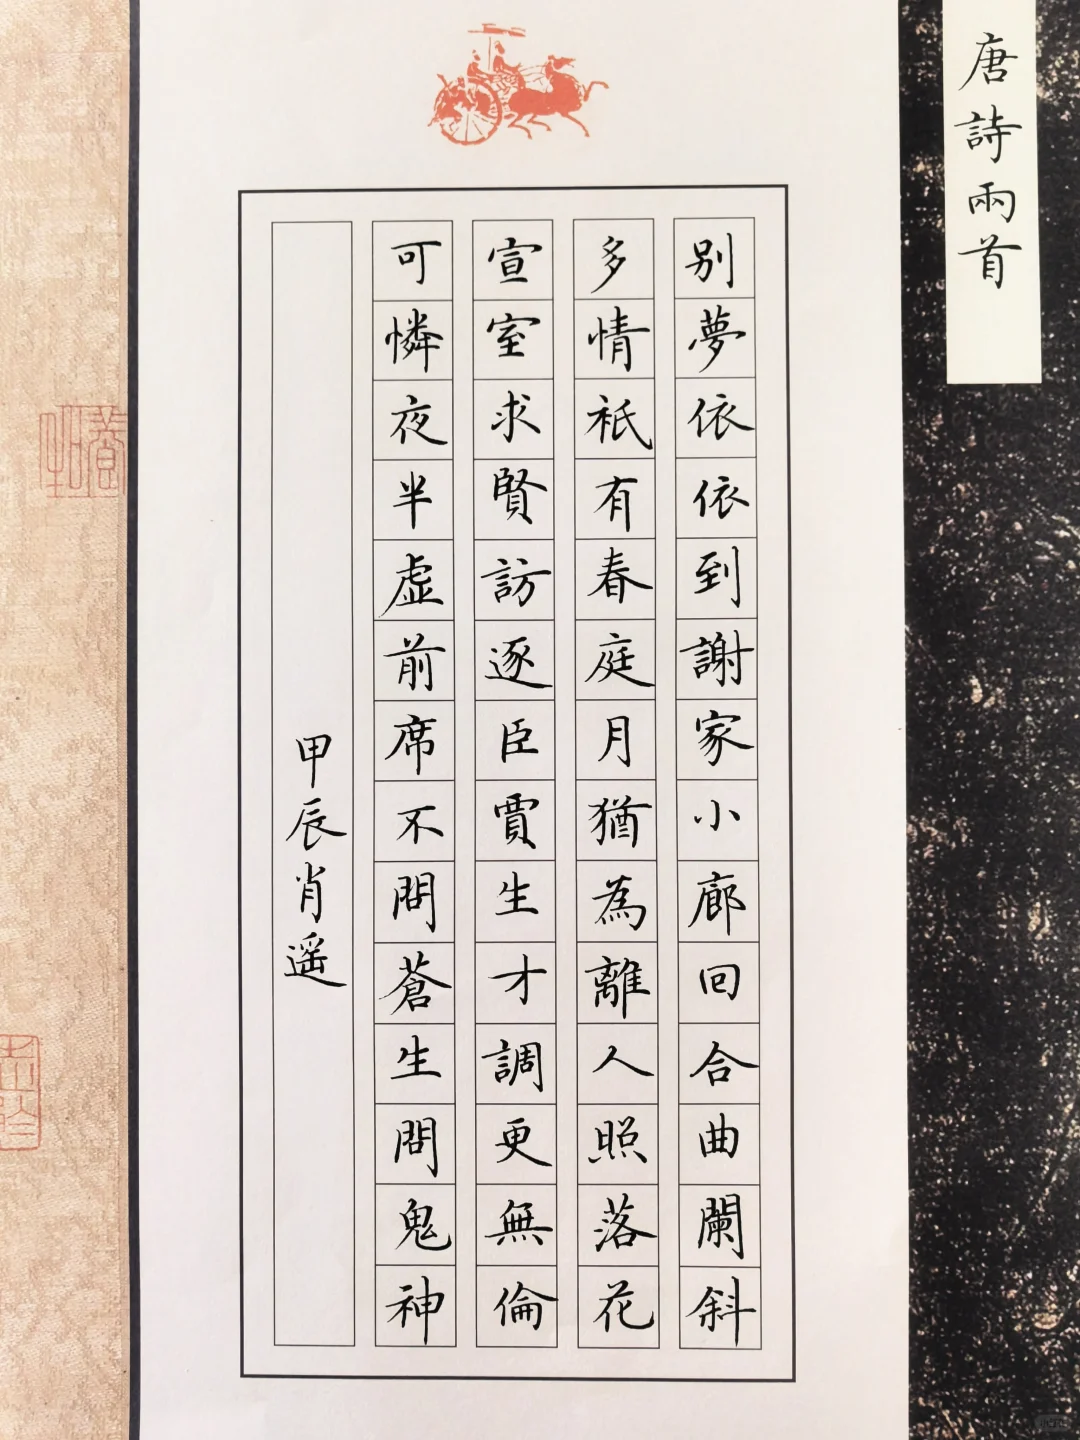 唐詩兩首
别夢依依到謝家小廊回合曲闌斜
多情祇有春庭月猶為離人照落花
宣室求賢訪逐臣賈生才調更無倫
可憐夜半虚前席不問蒼生問鬼神
甲辰肖遥